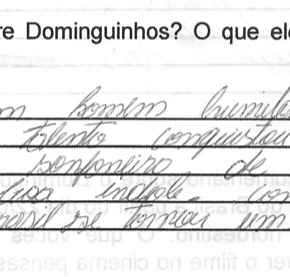 re Dominguinhos? O que el
m homem humild
talento conquistou
sanfoneiro de
indole
brasil se tornou um